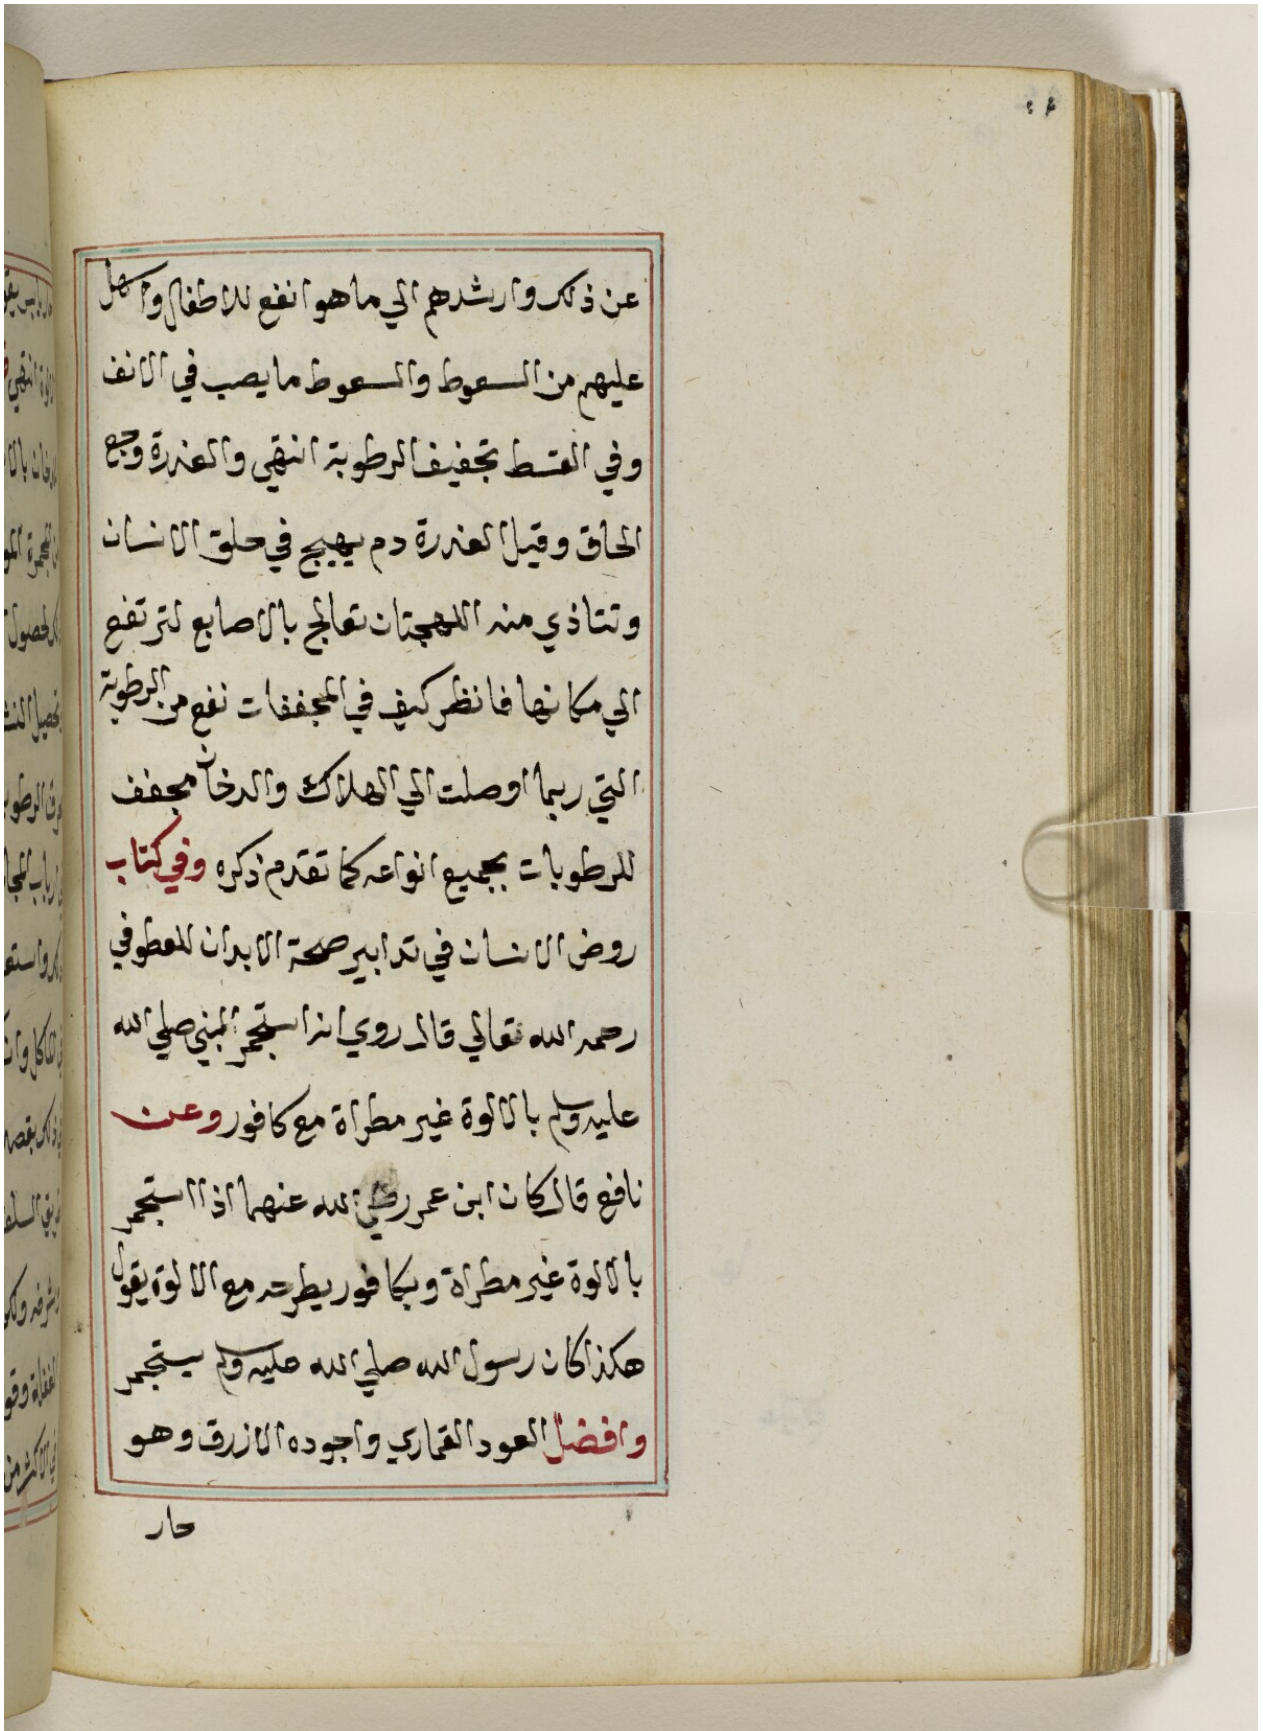 عن ذلك وارشدهم الي ما هو انفع للاطفال واسهل
عليهم من السعوط والسعوط ما يصب في الانف
وفي القسط تجفيف الرطوبة انتهي والعذرة وجع
الحلق وقيل العذرة دم يهيج في حلق الانسان
وتتاذي منه اللهجتان تعالج بالاصابع لترتفع
الي مكانها فانظر كيف في المجففات نفع من الرطوبة
التي ربما اوصلت الي الهلاك والدخان مجفف
للرطوبات بجميع انواعه كما تقدم ذكره وفي كتاب
روض الانسان في تدابير صحة الابدان للعطوفي
رحمه الله تعالي قال روي انه استجمر النبي صلي الله
عليه وسلم بالالوة غير مطراة مع كافور وعن
نافع قال كان ابن عمر رضي الله عنهما اذا استجمر
بالالوة غير مطراة وبكافور يطرحه مع الالوة يقول
هكذا كان رسول الله صلي الله عليه وسلم يستجمر
وافضل العود القماري واجوده الازرق وهو
حار